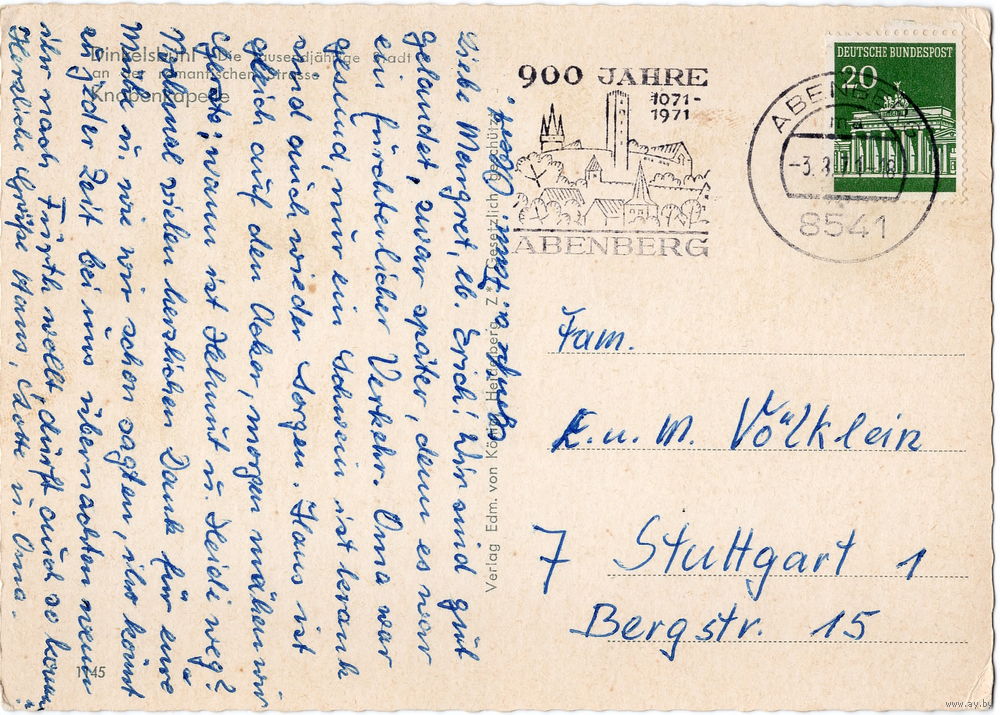 Dinkelsbühl Die tausendjährige Stadt
an der romantischen Strasse
Knabenkapelle
Liebe Mengret, lb. Erich! Wir sind gut
gelandet, zwar später, denn es war
ein fürchterlicher Verkehr. Oma war
gesund, nur ein Schwein ist krank
sind auch wieder Sorgen. Hans ist
gleich auf den Acker, morgen mähen wir
Gerste; wann ist Helmut u. Heidi weg?
Nochmal vielen herzlichen Dank für eure
Mühe u. wie wir schon sagten, ihr könnt
zu jeder Zeit bei uns übernachten wenn
ihr nach Fürth wollt, dürft auch so kommen
Herzliche Grüße Hans, Lotte u. Oma.
1145
Verlag Edm. von König, Heidelberg Z * Gesetzlich geschützt
900 JAHRE
1071-
1971
ABENBERG
DEUTSCHE BUNDESPOST
20
ABENBERG
-3.8.71-18
8541
Fam.
E. u. M. Völklein
7 Stuttgart 1
Bergstr. 15
www.ay.by